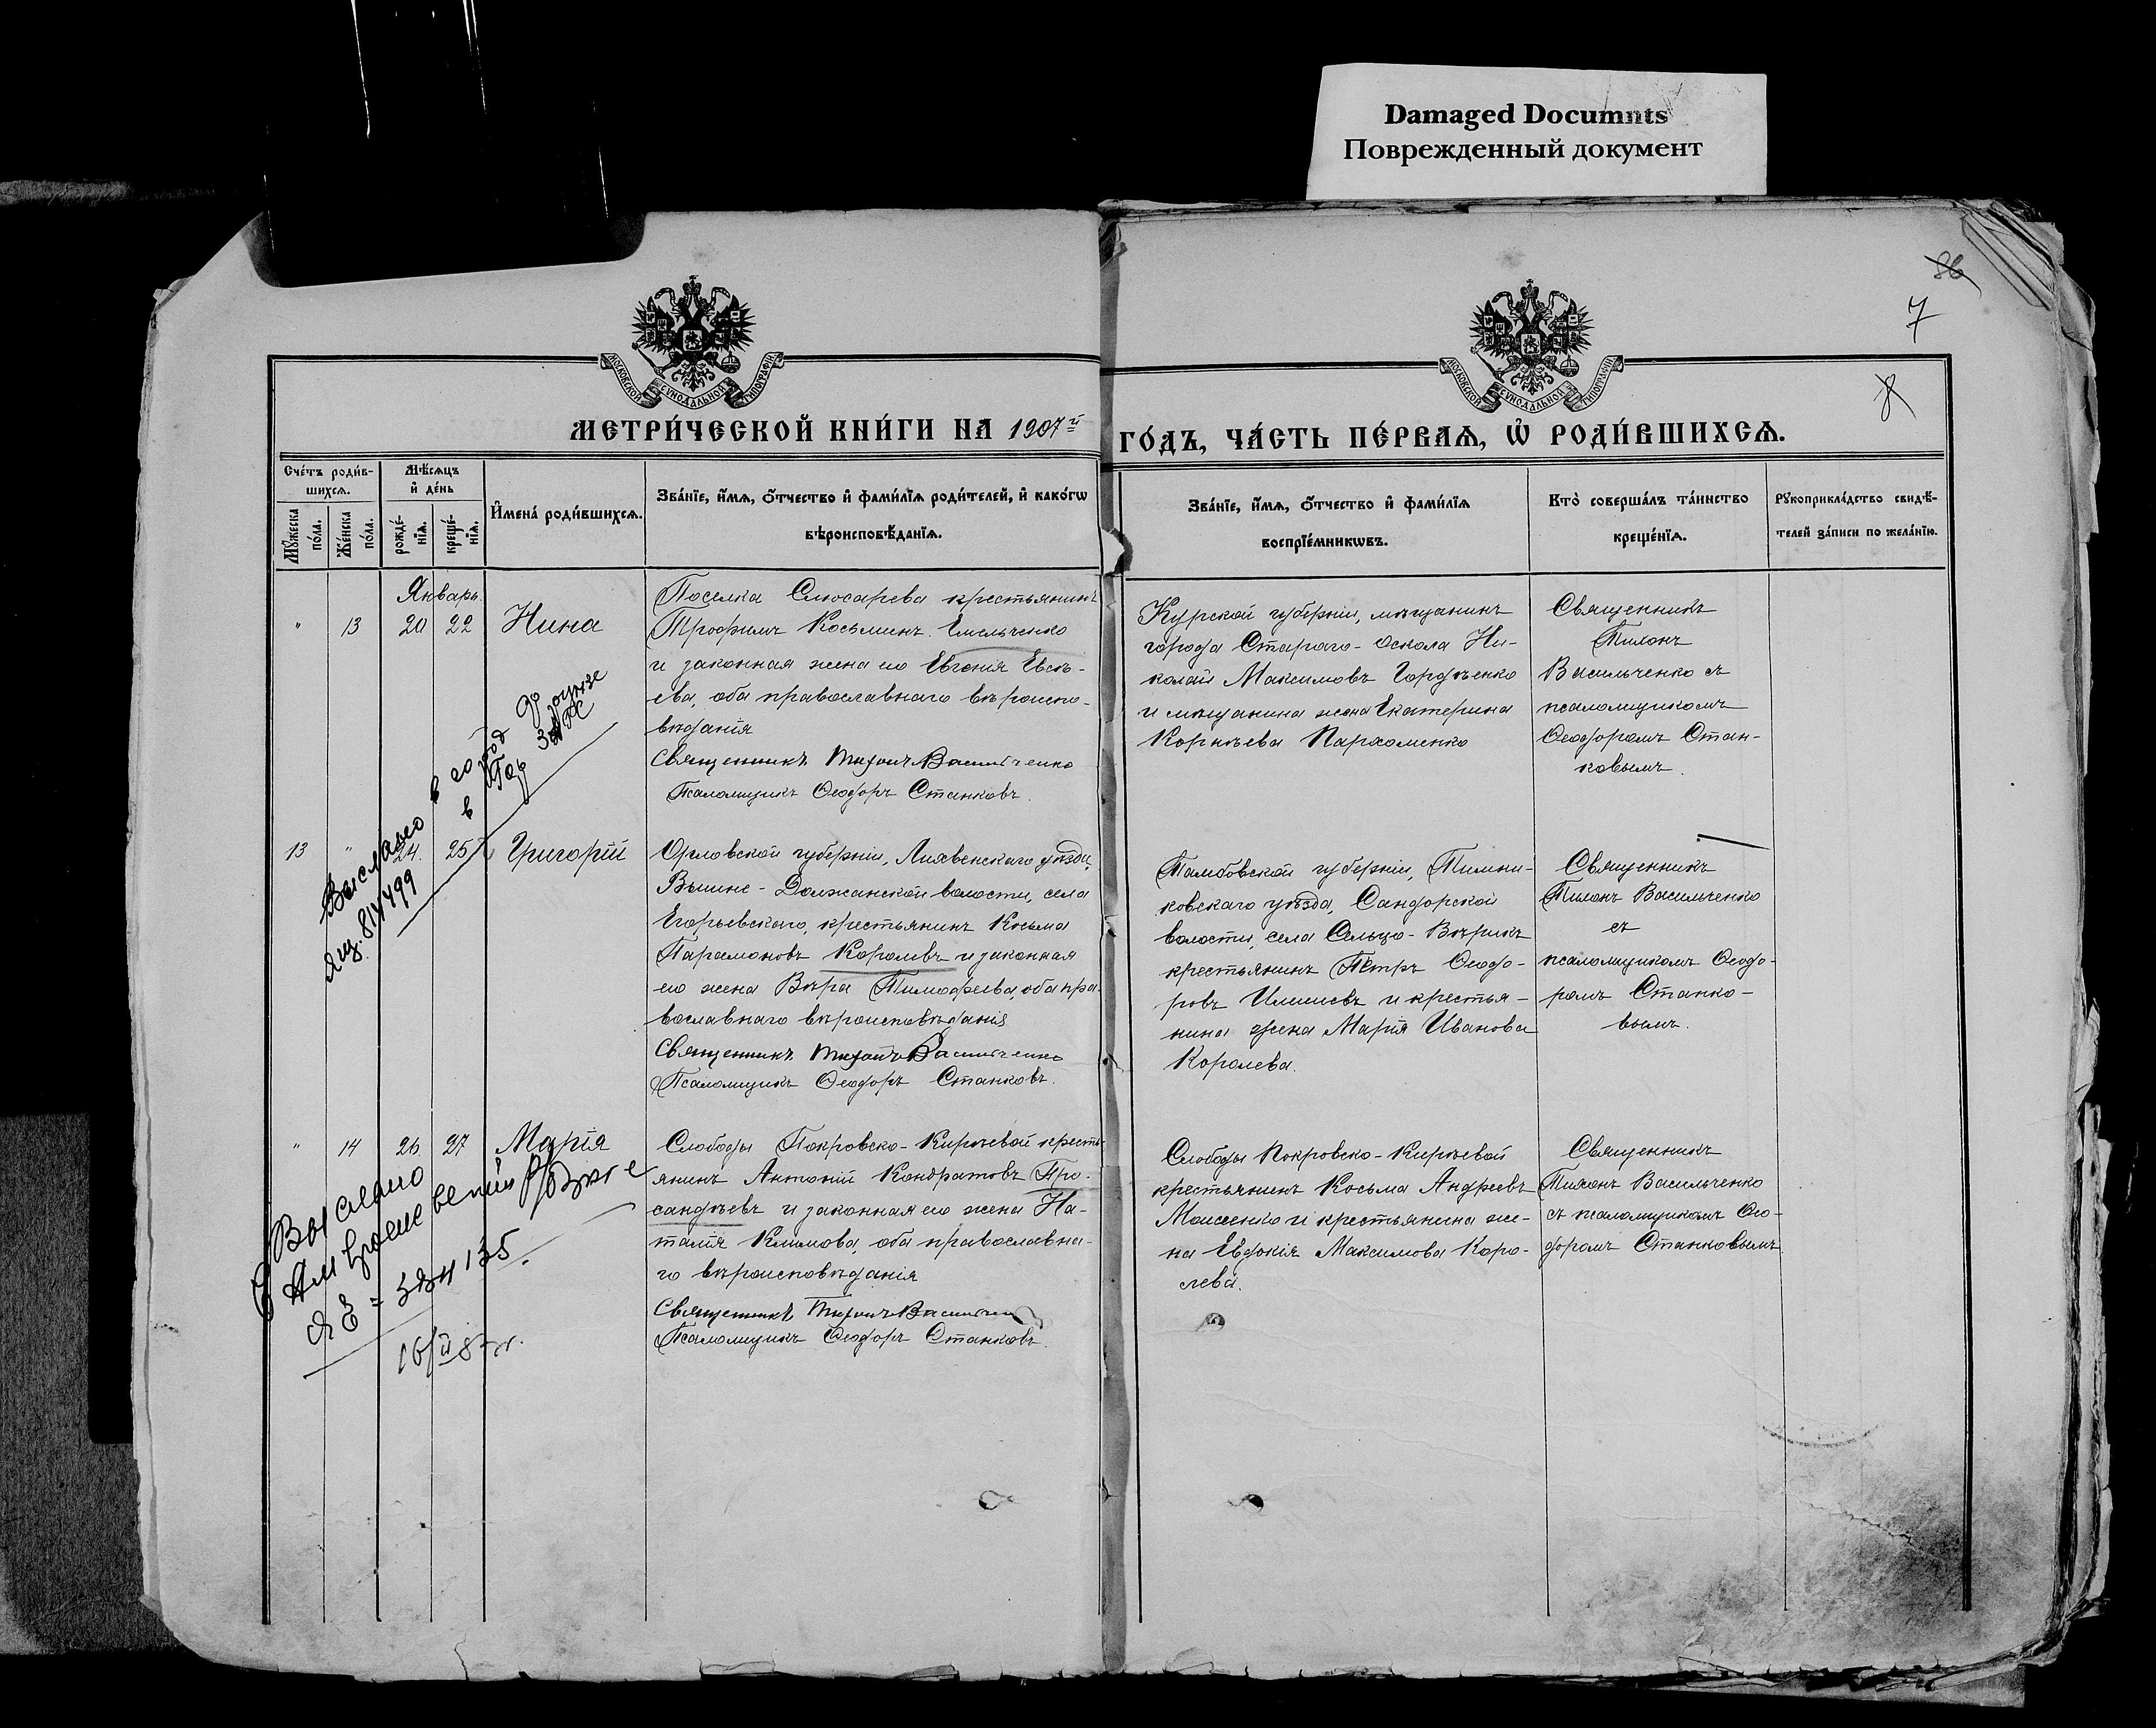 Damaged Documnts
Поврежденный документ
86
7
8
МОСКОВСКОЙ СѴНОДАЛЬНОЙ ТИПОГРАФІИ
МОСКОВСКОЙ СѴНОДАЛЬНОЙ ТИПОГРАФІИ
МЕТРИ́ЧЕСКОЙ КНИ́ГИ НА 1907й
ГО́ДЪ, ЧА́СТЬ ПЕ́РВАѦ, Ѡ РОДИ́ВШИХСѦ.
Сче́тъ роди́в-
шихсѧ.
Мꙋ́жеска по́ла.
Же́нска по́ла.
Мѣ́сѧцъ
и҆ де́нь
рожде́-
нїѧ.
креще́-
нїѧ.
И҆мена̀ роди́вшихсѧ.
Зва́нїе, и҆́мѧ, ѻ҆́тчество и҆ фами́лїѧ роди́телей, и҆ како́гѡ
вѣроисповѣ́данїѧ.
Зва́нїе, и҆́мѧ, ѻ҆́тчество и҆ фами́лїѧ
воспрїе́мникѡвъ.
Кто̀ соверша́лъ та́инство
креще́нїѧ.
Рꙋкоприкла́дство свидѣ́-
телей за́писи по жела́нїю.
Январь.
" 13 20 22 Нина
Поселка Слюсарева крестьянинъ
Трофимъ Косьминъ Емельченко
и законная жена его Евгенія Евсѣ-
ева, оба православнаго вѣроиспо-
вѣданія
Священникъ Тихонъ Васильченко
Псаломщикъ Ѳеодоръ Станковъ.
Курской губерніи, мѣщанинъ
города Стараго-Оскола Ни-
колай Максимовъ Гордѣенко
и мѣщанина жена Екатерина
Корнѣева Пархоменко
Священникъ
Тихонъ
Васильченко съ
псаломщикомъ
Ѳеодоромъ Стан-
ковымъ.
Выслано в город
в
814499
13 " 24. 25 Григорій
Орловской губерніи, Ливенскаго уѣзда,
Вышне-Должанской волости, села
Егорьевскаго, крестьянинъ Косьма
Парамоновъ Королевъ и законная
его жена Вѣра Тимофеева, оба пра-
вославнаго вѣроисповѣданія
Священникъ Тихонъ Васильченко
Псаломщикъ Ѳеодоръ Станковъ.
Тамбовской губерніи, Темни-
ковскаго уѣзда,
волости, села
крестьянинъ Петръ Ѳеодо-
ровъ и крестья-
нина жена Марія Иванова
Королева.
Священникъ
Тихонъ Васильченко
съ
псаломщикомъ Ѳеодо-
ромъ Станко-
вымъ.
" 14 26. 27 Марія
Слободы Покровско-Киреевой кресть-
янинъ Антоній Кондратовъ Про-
сандѣевъ и законная его жена На-
талія Климова, оба православна-
го вѣроисповѣданія
Священникъ Тихонъ Васильченко
Псаломщикъ Ѳеодоръ Станковъ.
Слободы Покровско-Киреевой
крестьянинъ Косьма Андреевъ
Моисеенко и крестьянина же-
на Евдокія Максимова Коро-
лева.
Священникъ
Тихонъ Васильченко
съ псаломщикомъ Ѳео-
доромъ Станковымъ.
Выслано
334135